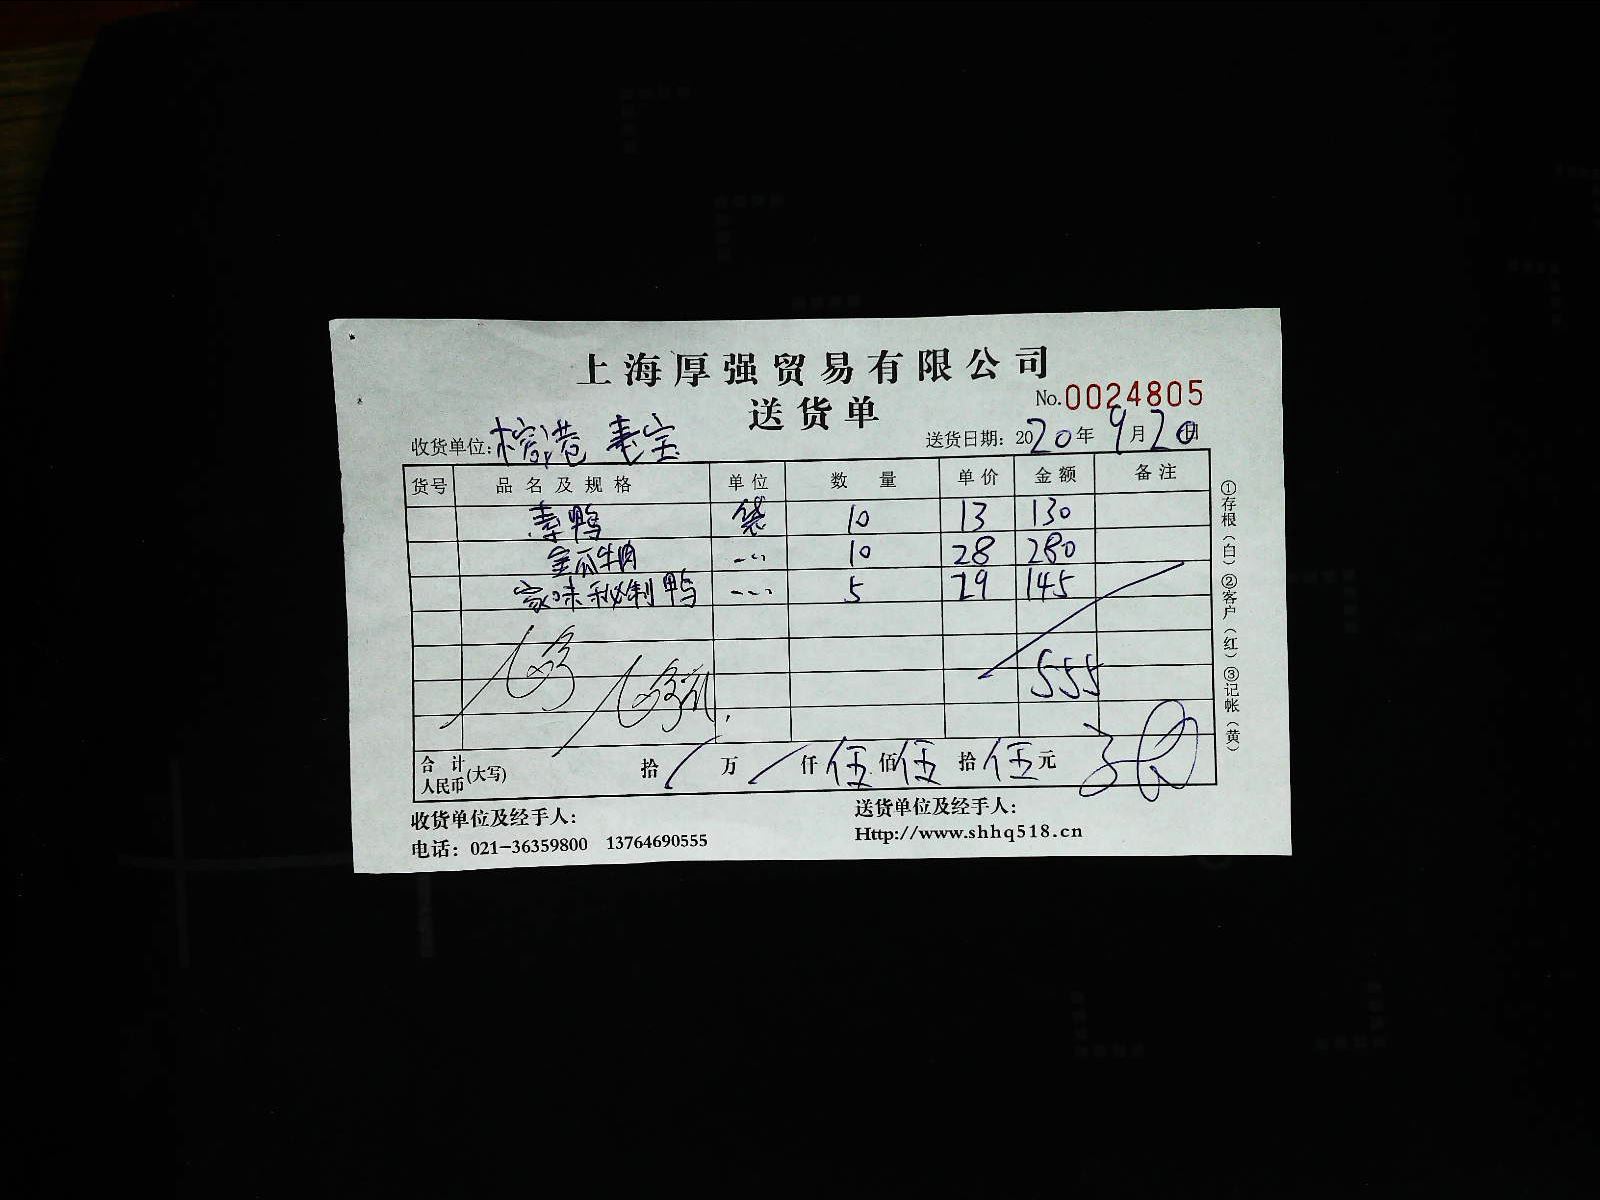 上海厚强贸易有限公司
送货单
No.0024805
收货单位: 送货日期: 2020年9月20日
货号 品名及规格 单位 数量 单价 金额 备注
素鸭 袋 10 13 130
金瓜牛肉 10 28 280
家味秘制鸭 5 29 145
555
合计人民币(大写) 拾 万 仟 伍佰 伍拾 伍元
收货单位及经手人: 送货单位及经手人:
电话: 021-36359800 13764690555 Http://www.shhq518.cn
①存根(白)②客户(红)③记帐(黄)